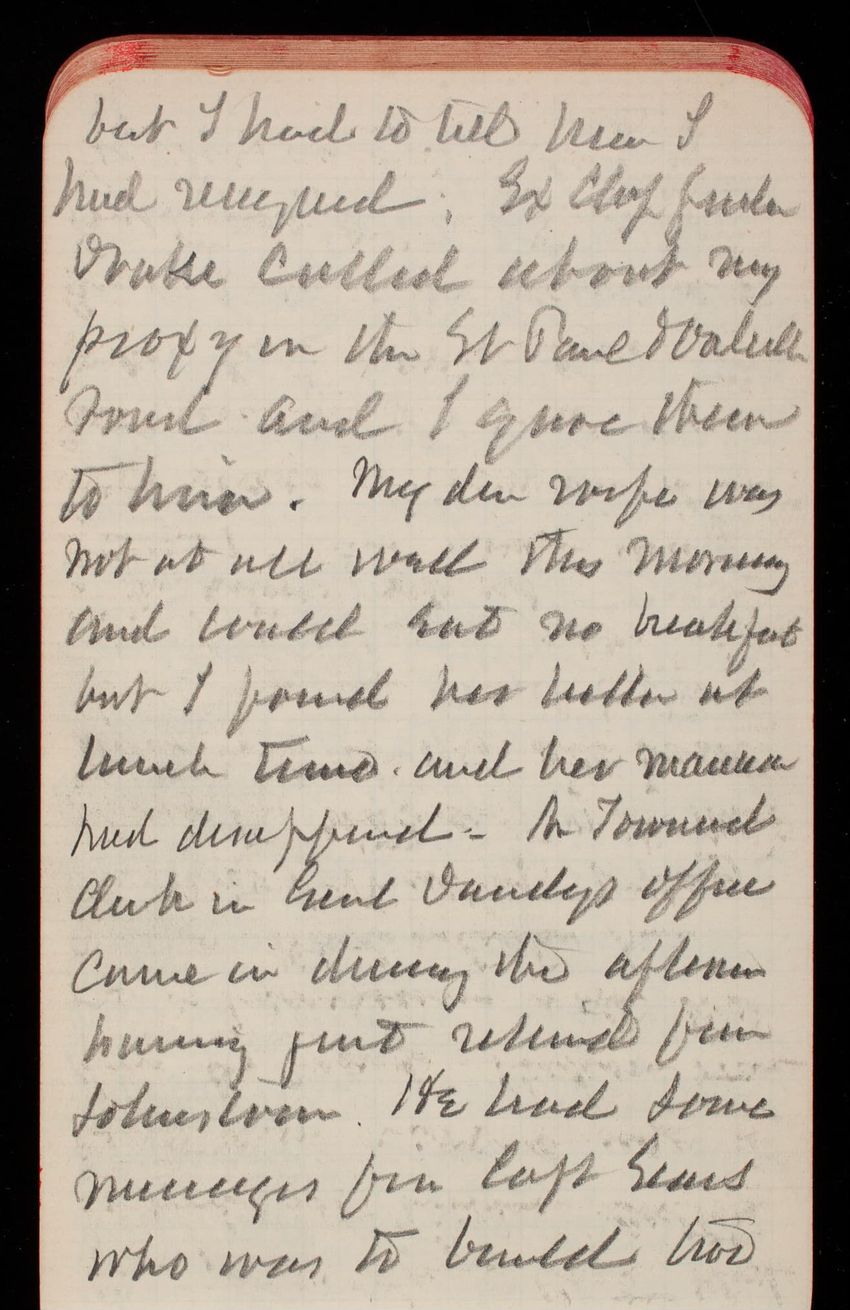 but I had to tell him I
had resigned. Ex Chf Justice
Drake called about my
proxy in the St Paul & Duluth
Road and I gave them
to him. My dear wife was
not at all well this morning
and would eat no breakfast
but I found her better at
lunch time and her
had disappeared - Mr Townsend
Clerk in Genl Dandys office
came in during the afternoon
having just returned from
Johnstown. He had some
messages from Capt Sears
who was to build two